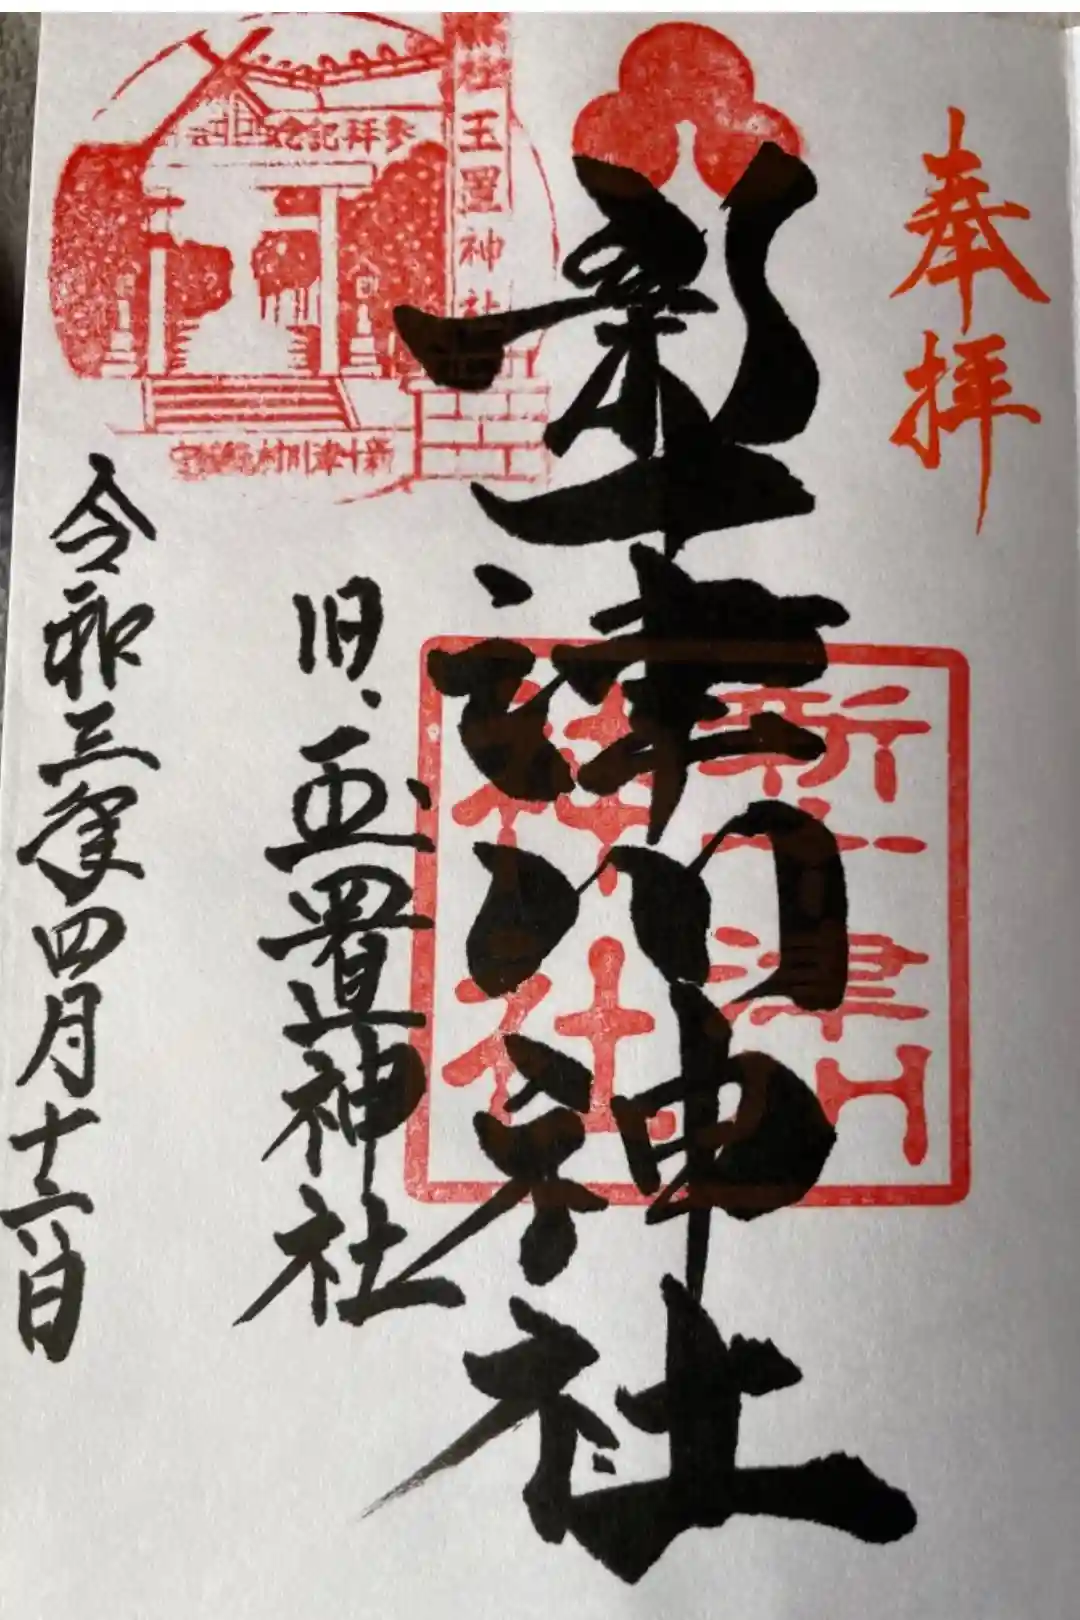 奉拝
新十津川神社
新十津川
神社
旧、玉置神社
玉置神社
参拝記念
新十津川村
令和三年四月十二日